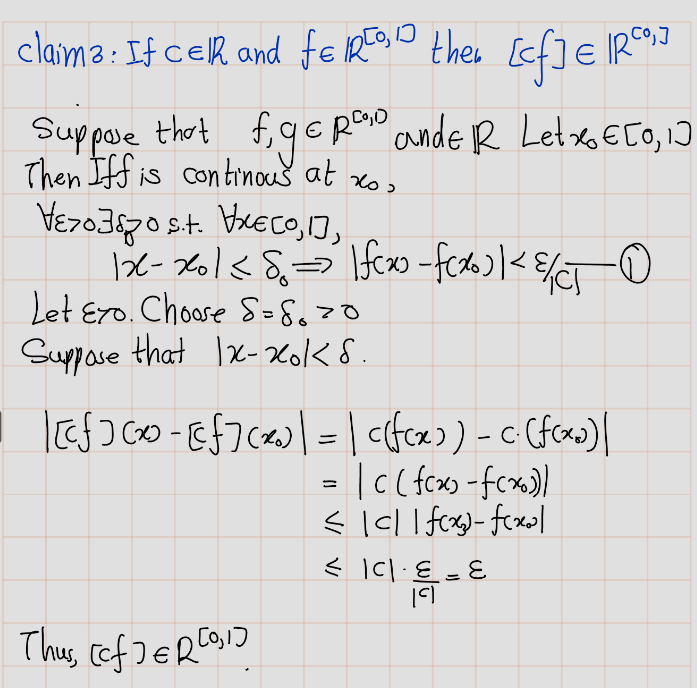 claim3: If C∈ℝ and f∈ℝ^[0,1] then [cf]∈ℝ^[0,1]
Suppose that f,g∈ℝ^[0,1] and∈ℝ Let x₀∈[0,1]
Then If f is continous at x₀,
∀ε>0∃δ₀>0 s.t. ∀x∈[0,1],
|x-x₀|<δ₀⟹|f(x)-f(x₀)|<ε/|C| —①
Let ε>0. Choose δ=δ₀>0
Suppose that |x-x₀|<δ.
|[cf](x)-[cf](x₀)|=|c(f(x))-c·(f(x₀))|
=|c(f(x)-f(x₀))|
≤|c||f(x)-f(x₀)|
≤|c|·ε/|c|=ε
Thus, [cf]∈ℝ^[0,1].